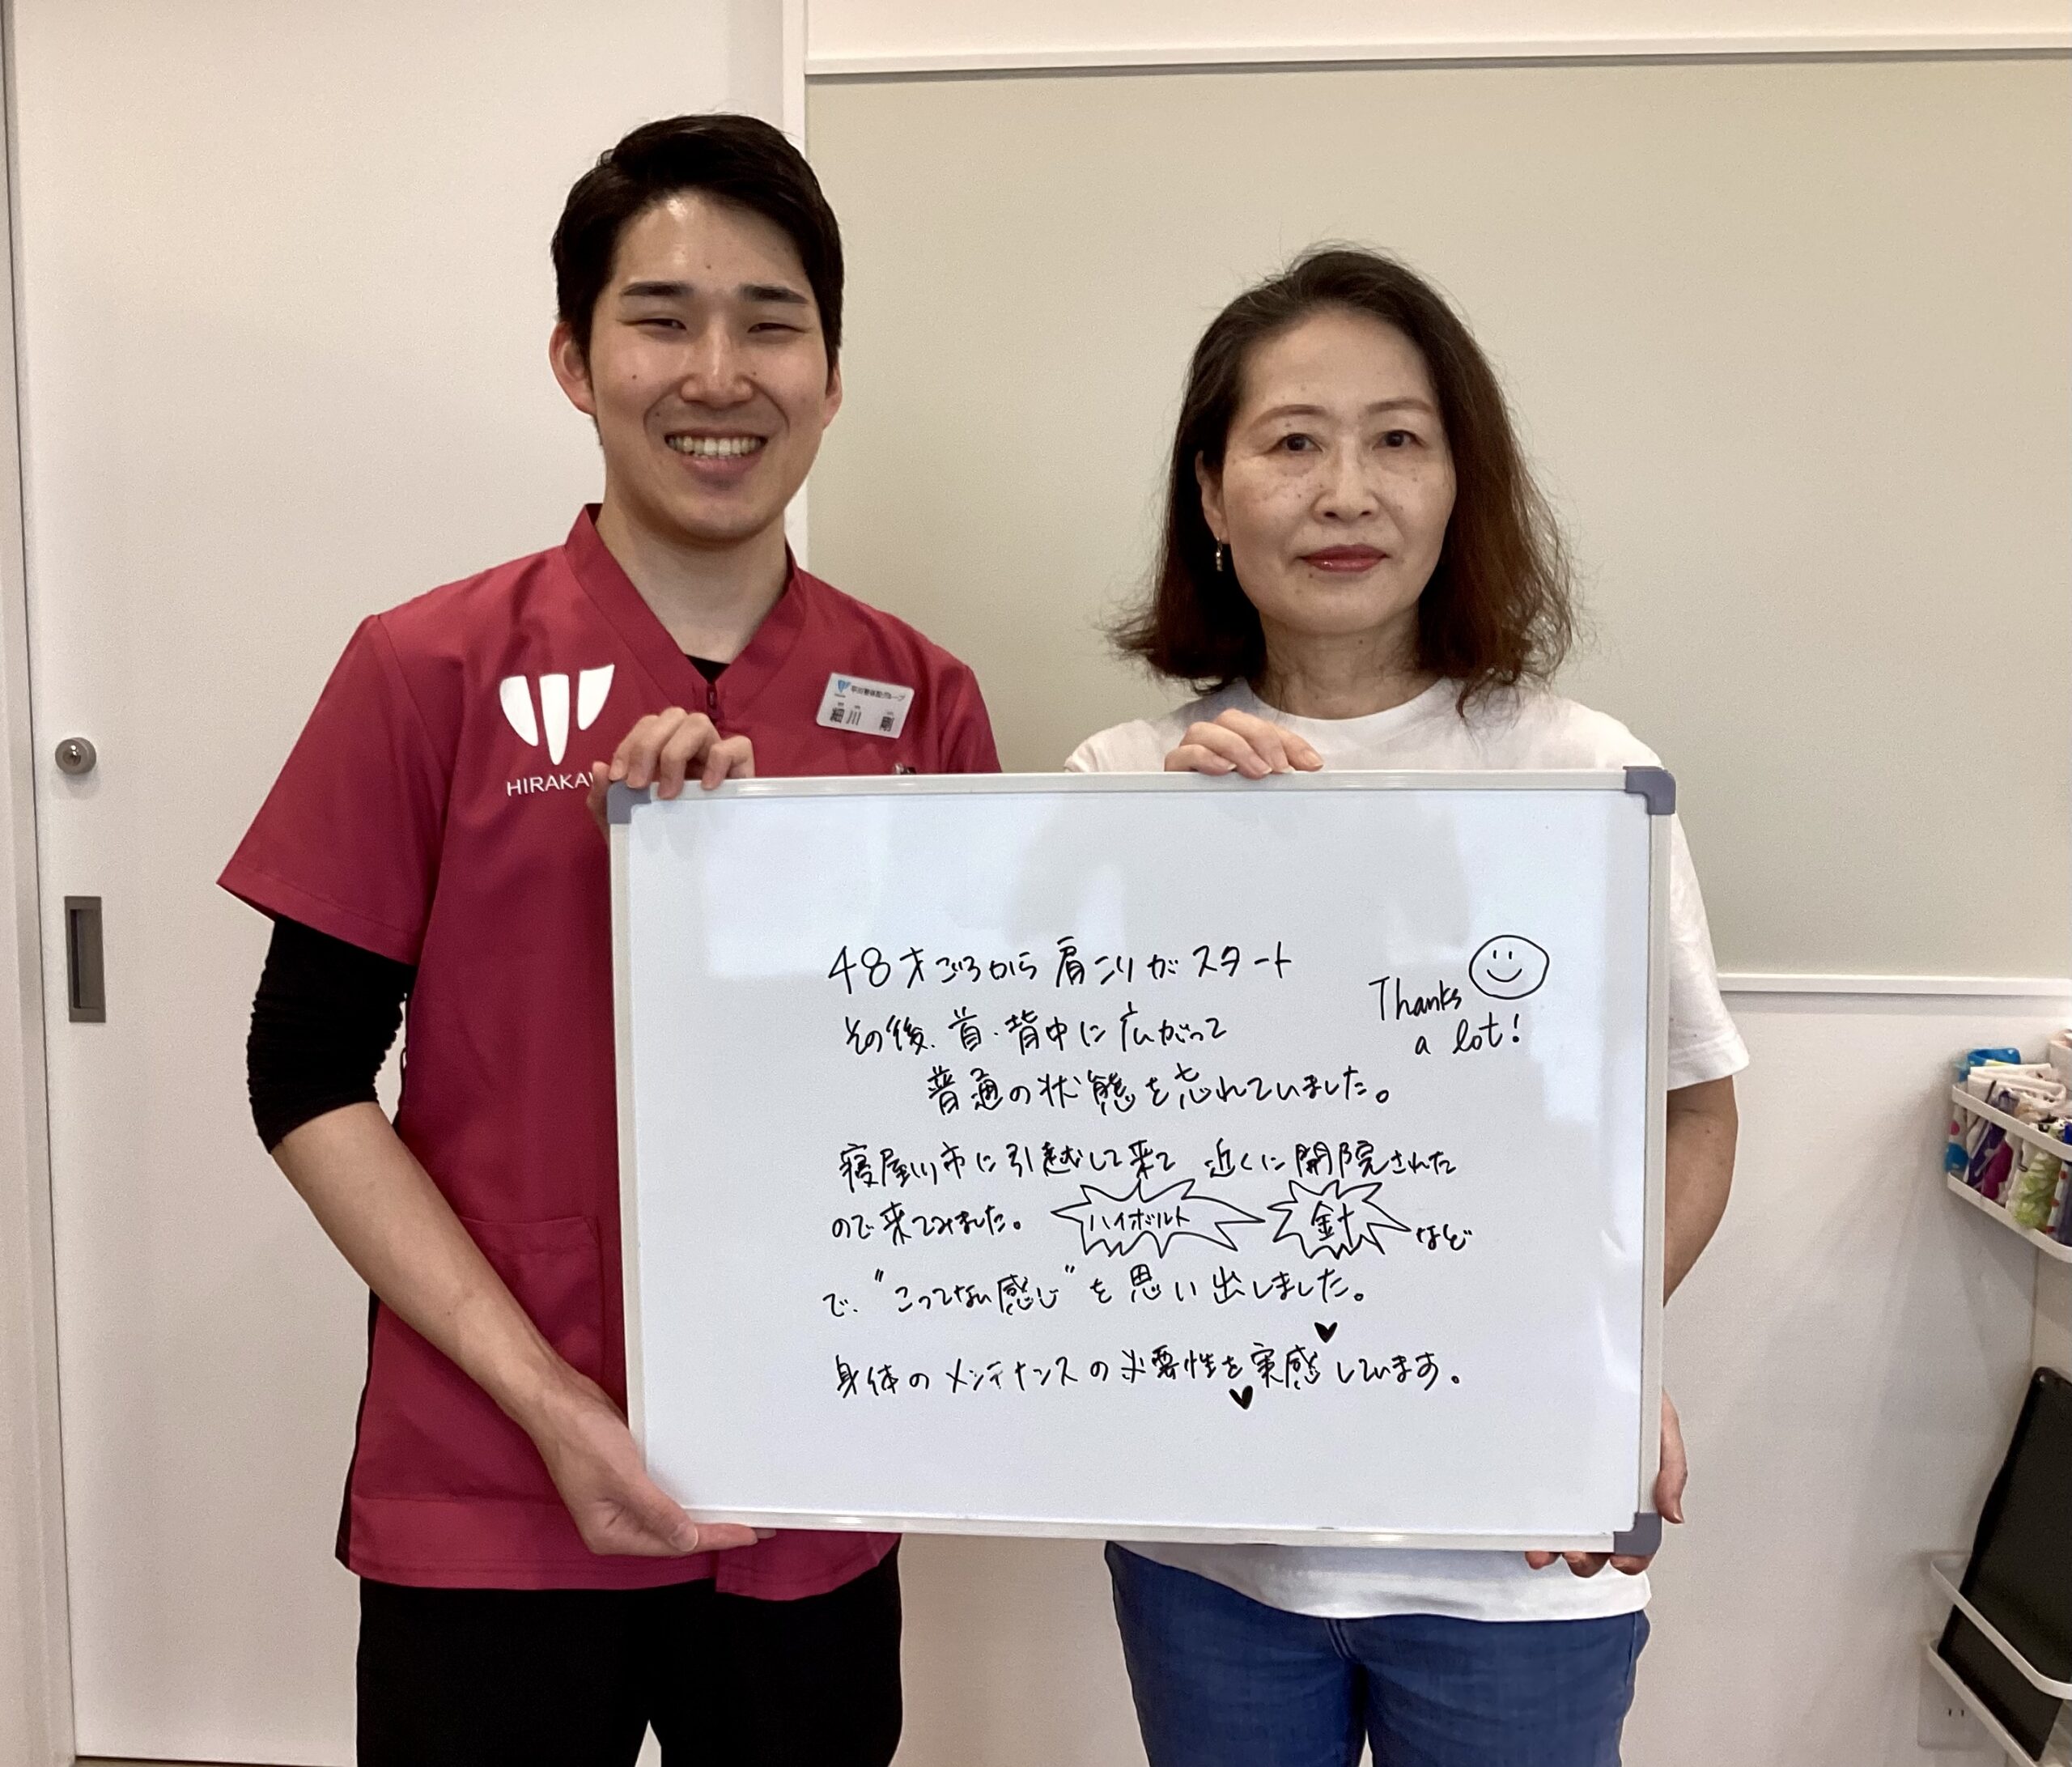 HIRAKAW
細川 剛
48才ごろから肩こりがスタート
その後、首・背中に広がって
普通の状態を忘れていました。
Thanks
a lot!
寝屋川市に引越して来て 近くに開院された
ので来てみました。 ハイボルト 針 など
で、"こってない感じ"を思い出しました。
身体のメンテナンスの必要性を実感しています。